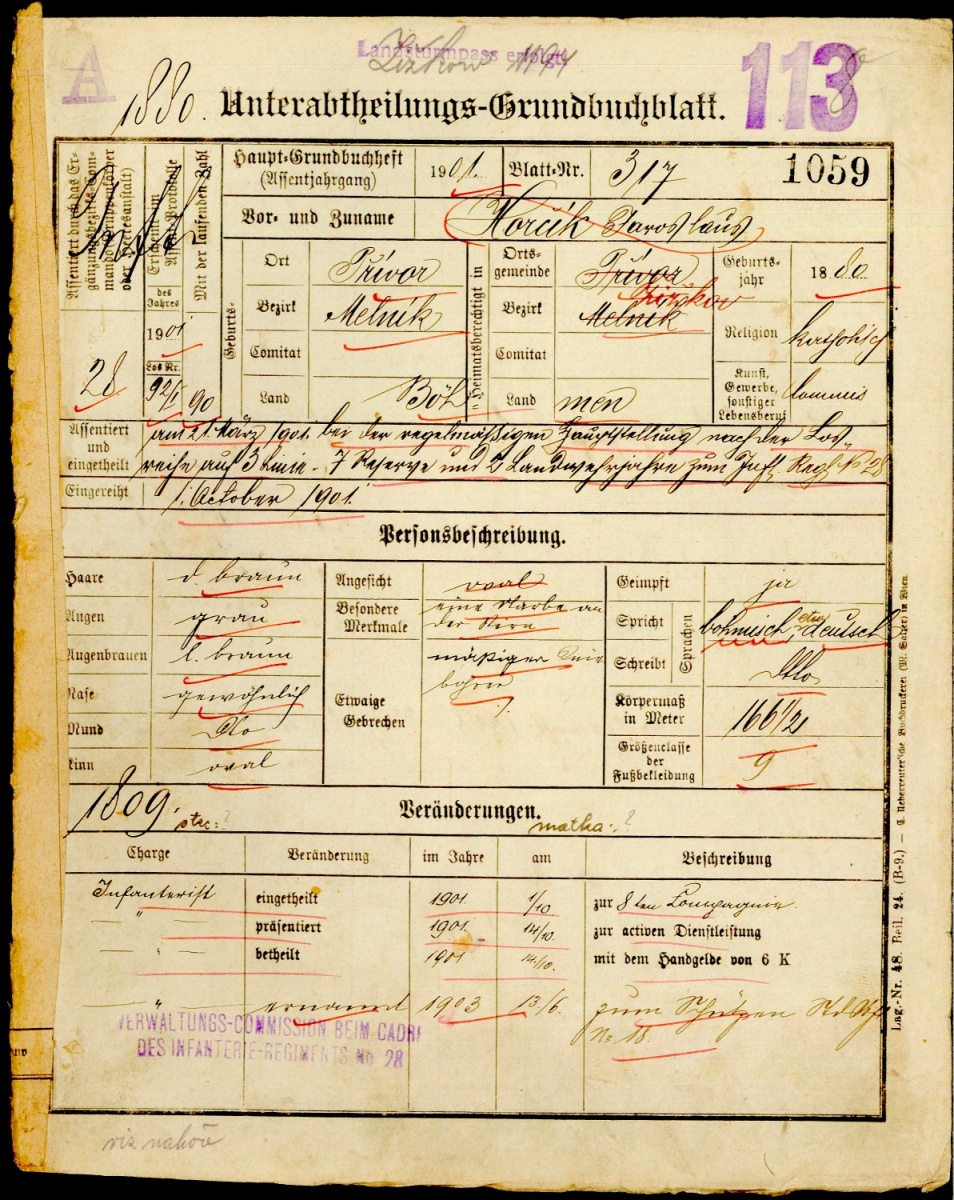 A
Landsturmpass erfolgt
Žižkow 1194
113
1880. Unterabtheilungs-Grundbuchblatt.
Assentiert durch das Ergänzungsbezirks-Commando
oder Heeresanstalt)
28
Assent-Protokolle
des Jahres
1901
Los Nr.
92/I
Mit der laufenden Zahl
90
Haupt-Grundbuchheft
(Assentjahrgang)
1901.
Blatt-Nr.
317
1059
Vor- und Zuname
Horčik Jaroslaus
Geburts-
Ort
Přivor
Bezirk
Melnik
Comitat
Land
Böh
Heimatsberechtigt in
Orts-
gemeinde
Přivor
Žižkow
Bezirk
Melnik
Comitat
Land
men
Geburts-
jahr
1880.
Religion
katholisch
Kunst,
Gewerbe,
sonstiger
Lebensberuf
Commis
Assentiert
und
eingetheilt
am 21. März 1901. bei der regelmäßigen Hauptstellung nach der Los-
reihe auf 3 Linie- 7 Reserve und 2 Landwehrjahre zum Inft. Regt. No 28
Eingereiht
1. October 1901.
Personsbeschreibung.
Haare
d. braun
Augen
grau
Augenbrauen
l. braun
Nase
gewöhnlich
Mund
Dto
Kinn
oval
Angesicht
oval
Besondere
Merkmale
eine Narbe an
der Stirn
Etwaige
Gebrechen
mäßiger
Geimpft
ja
Spricht
Schreibt
Sprachen
böhmisch, etw deutsch
Dto
Körpermaß
in Meter
166 1/2
Größenclasse
der
Fußbekleidung
9
1809.
otec:?
Veränderungen.
matka:?
Charge
Veränderung
im Jahre
am
Beschreibung
Infanterist
eingetheilt
1901
1/10
zur 8ten Compagnie
"
präsentiert
1901.
14/10.
zur activen Dienstleistung
"
betheilt
1901
14/10.
mit dem Handgelde von 6 K
"
ernannt
1903
13/6.
zum Schützen
No 18.
VERWALTUNGS-COMMISSION BEIM CADRE
DES INFANTERIE-REGIMENTS No 28
viz nahoře
Lag.-Nr. 48. Beil. 24. (B-9.) — C. Ueberreuter'sche Buchdruckerei (M. Salzer) in Wien.